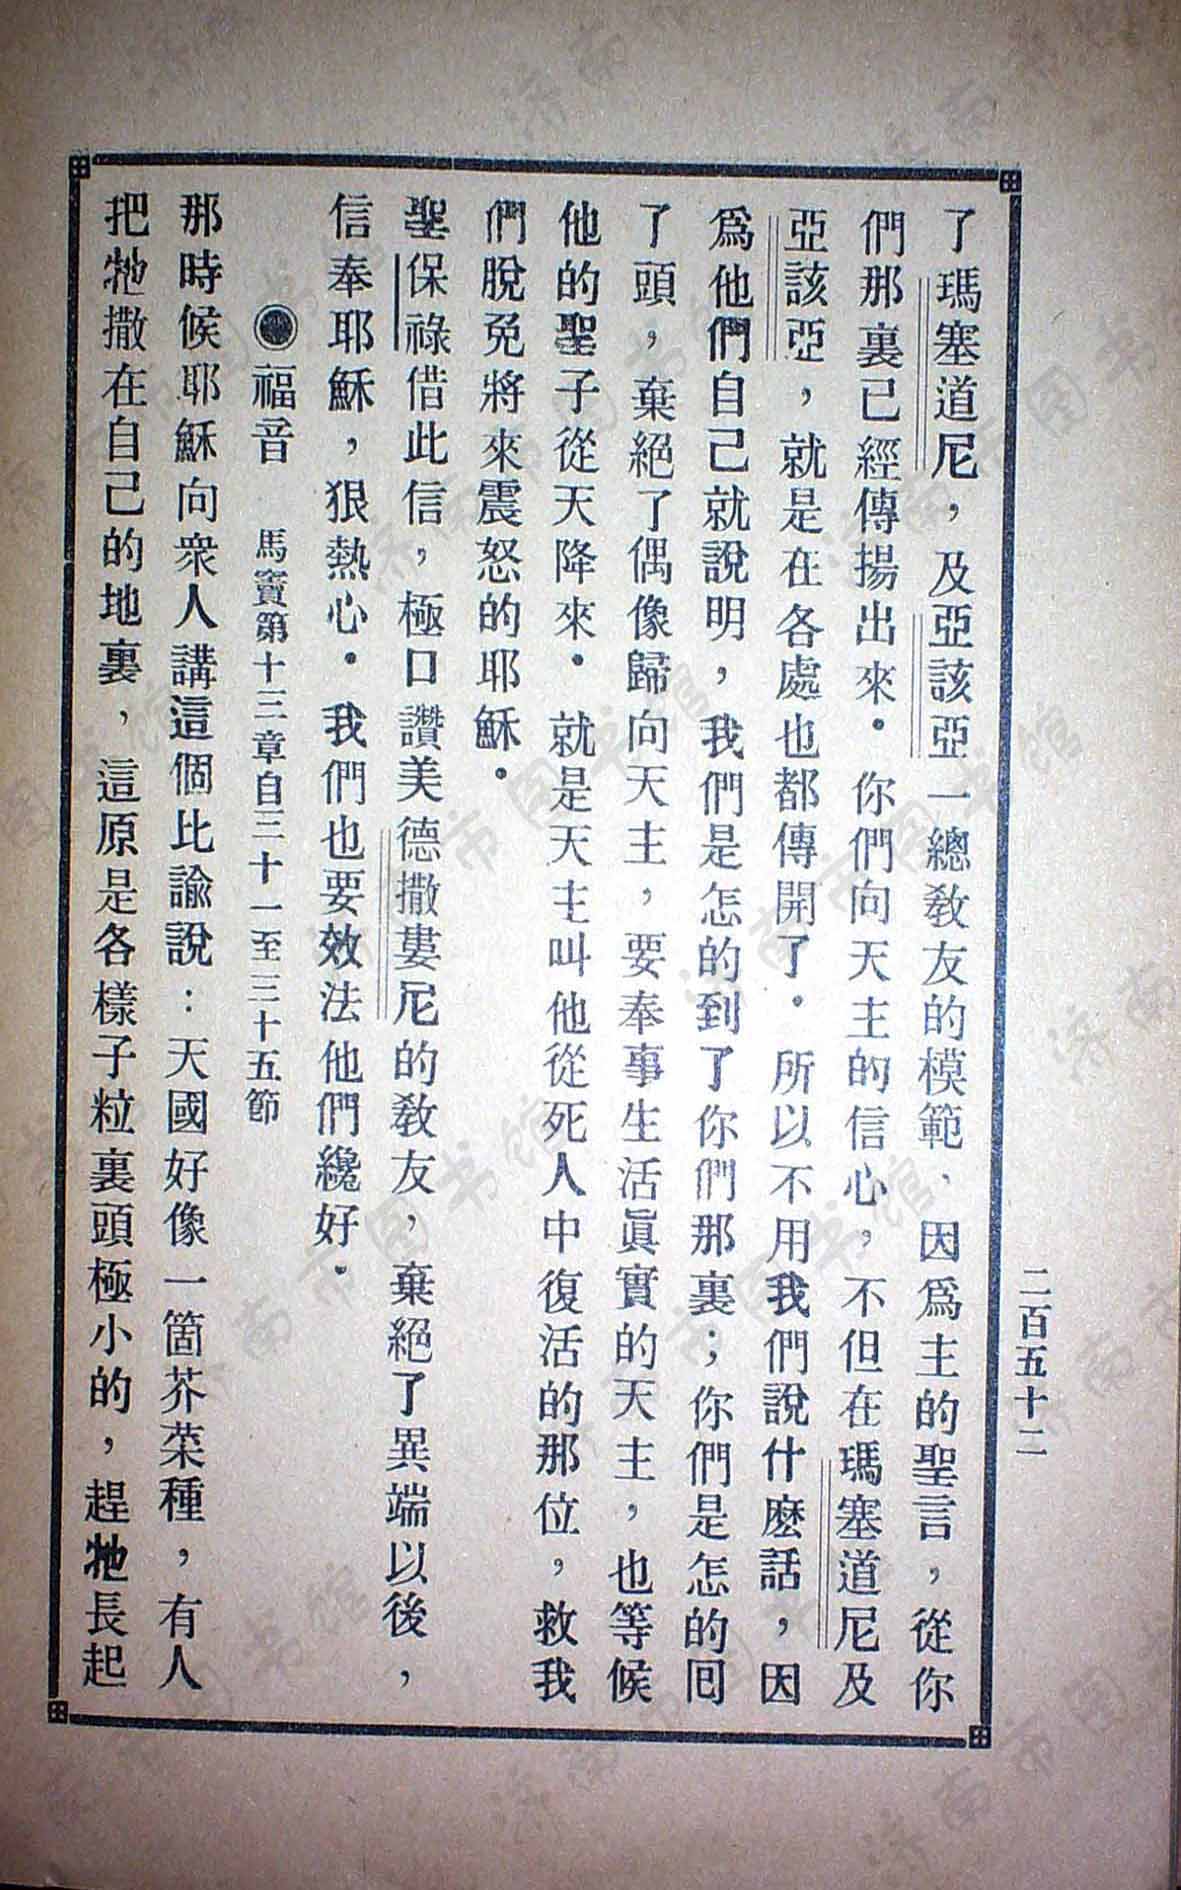 二百五十二
了瑪塞道尼，及亞該亞一總敎友的模範、因爲主的聖言，從你
們那裏已經傳揚出來．你們向天主的信心，不但在瑪塞道尼及
亞該亞，就是在各處也都傳開了．所以不用我們說什麽話，因
爲他們自己就說明，我們是怎的到了你們那裏；你們是怎的囘
了頭，棄絕了偶像歸向天主，要奉事生活眞實的天主，也等候
他的聖子從天降來．就是天主叫他從死人中復活的那位，救我
們脫免將來震怒的耶穌．
聖保祿借此信，極口讚美德撒婁尼的敎友，棄絕了異端以後，
信奉耶穌，狠熱心．我們也要效法他們纔好．
◉福音　馬竇第十三章自三十一至三十五節
那時候耶穌向衆人講這個比諭說：天國好像一箇芥菜種，有人
把牠撒在自己的地裏，這原是各樣子粒裏頭極小的，趕牠長起
济南市图书馆